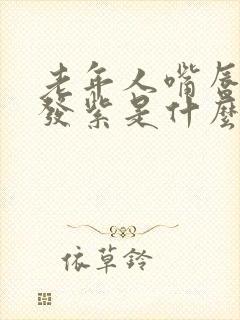 老年人嘴唇
發紫是什麼
依草鈴